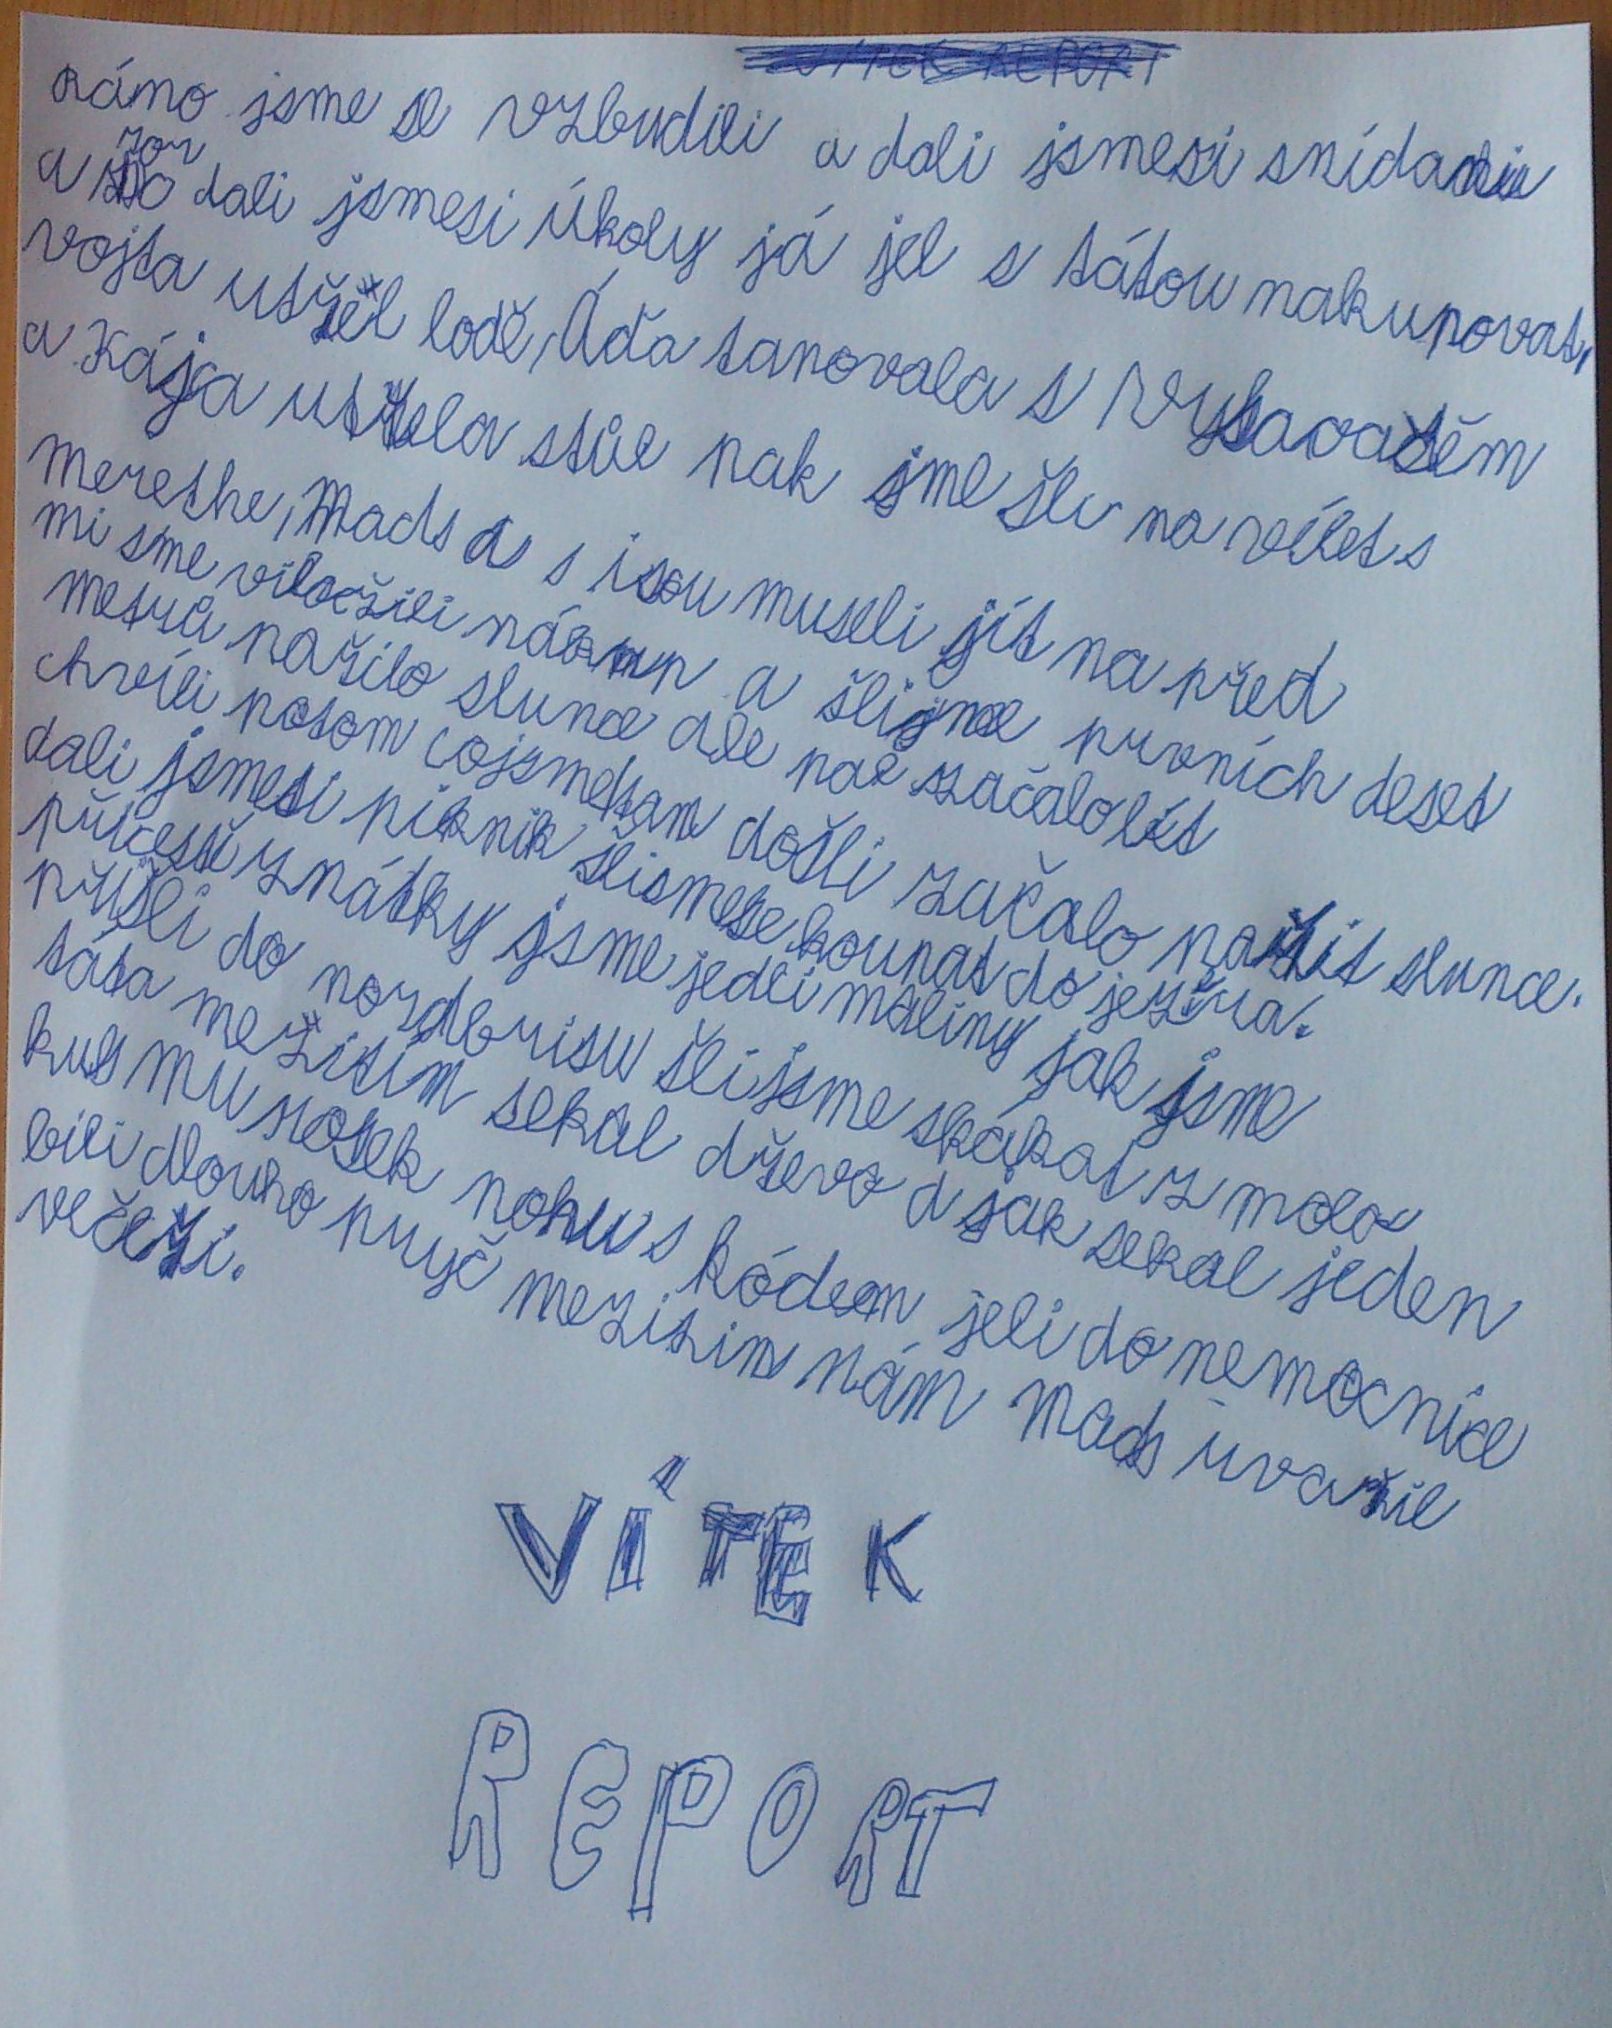 VÍTEK REPORT
Ráno jsme se vzbudili a dali jsmesi snídani
a dali jsmesi úkoly já jel s tátou nakupovat,
vojta utřel lodě, Áďa tanovala s vysavačěm
a Kája utřela stůl pak jsme šli na vílet s
merethe, Mads a s isou museli jít na před
mi sme viložili nákup a šlijsme prvních deset
metrů pařilo slunce ale pak začalo lít
chvíli potom cojsmetam došli začalo pařit slunce.
dali jsmesi piknik šlismese koupat do jezera.
přicestě zpátky jsme jedli maliny jak jsme
přišli do nordbrisu šlijsme skákat z mola
táta mežitím sekal dřevo a jak sekal jeden
kus mu nohu s kódem jeli do nemocnice
bili dlouho pryč mezitim nám Mads uvařil
večeři.
VÍTEK
REPORT